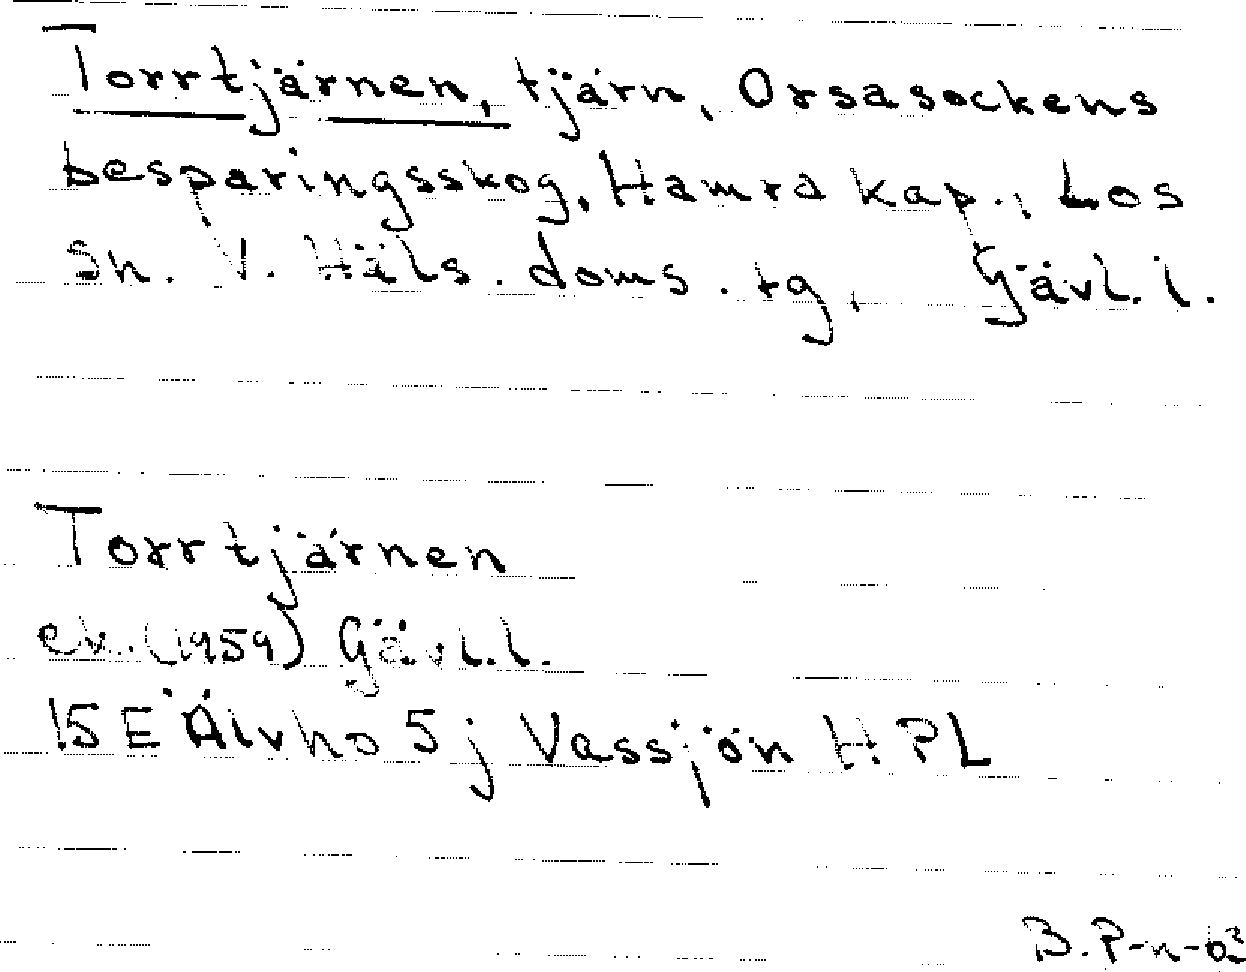 Torrtjärnen, tjärn, Orsasockens
besparingsskog, Hamra kap., Los
sn. V. Häls. doms. tg, Gävl. l.
Torrtjärnen
ek. (1959) Gävl. l.
15 E Älvho 5 j Vassjön HPL
B. P-n-62